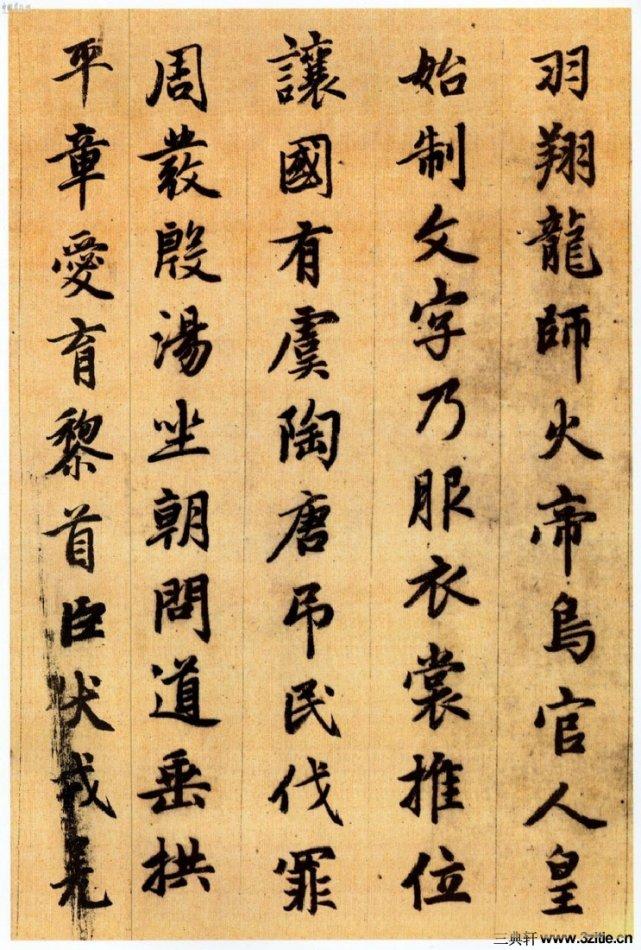 羽翔龍師火帝鳥官人皇
始制文字乃服衣裳推位
讓國有虞陶唐吊民伐罪
周發殷湯坐朝問道垂拱
平章愛育黎首臣伏戎羌
三典轩 www.3zitie.cn